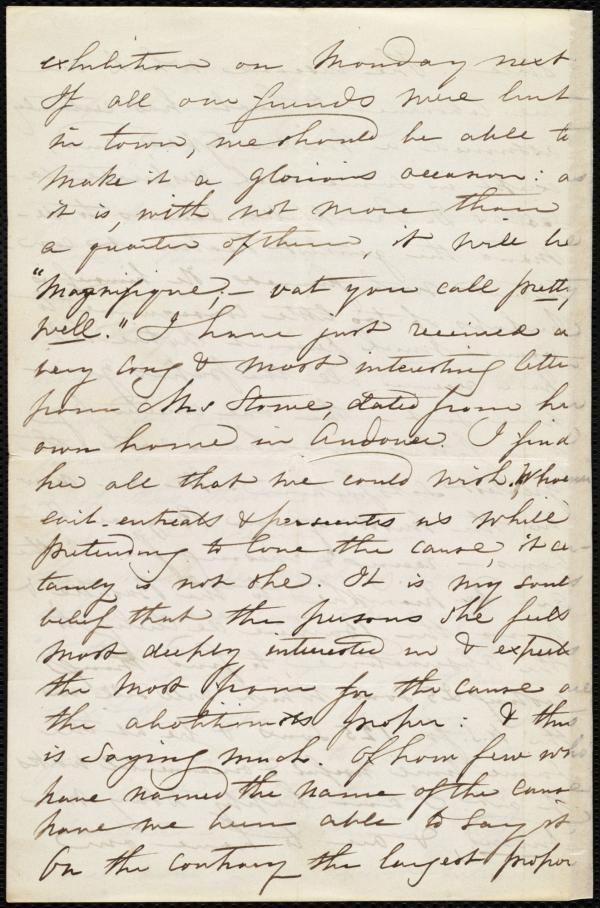 exhibition on Monday next
If all our friends were but
in town, we should be able to
make it a glorious occasion: as
it is, with not more than
a quarter of them, it will be
"Magnifique; – vat you call pretty
well." I have just received a
very long & most interesting letter
from Mrs Stowe, dated from her
own home in Andover. I find
her all that we could wish. Who
evil-entreats & persecutes us while
pretending to love the cause, it cer
tainly is not she. It is my soul's
belief that the persons she feels
most deeply interested in & expects
the most from for the cause are
the abolitionists proper: & this
is saying much. Of how few who
have named the name of the cause
have we been able to say it
On the contrary the largest propor